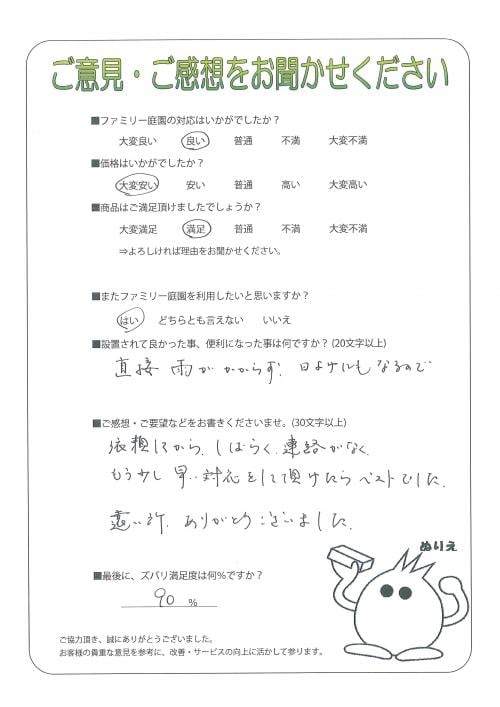 ご意見・ご感想をお聞かせください
■ファミリー庭園の対応はいかがでしたか？
大変良い 良い 普通 不満 大変不満
■価格はいかがでしたか？
大変安い 安い 普通 高い 大変高い
■商品はご満足頂けましたでしょうか？
大変満足 満足 普通 不満 大変不満
⇒よろしければ理由をお聞かせください。
■またファミリー庭園を利用したいと思いますか？
はい どちらとも言えない いいえ
■設置されて良かった事、便利になった事は何ですか？(20文字以上)
直接 雨が かからず、日よけにもなるので
■ご感想・ご要望などをお書きくださいませ。(30文字以上)
してから、しばらく、連絡がなく
もう少し 早い 対応をして頂けたら ベストでした。
ありがとうございました。
ぬりえ
■最後に、ズバリ満足度は何％ですか？
90 ％
ご協力頂き、誠にありがとうございました。
お客様の貴重な意見を参考に、改善・サービスの向上に活かして参ります。